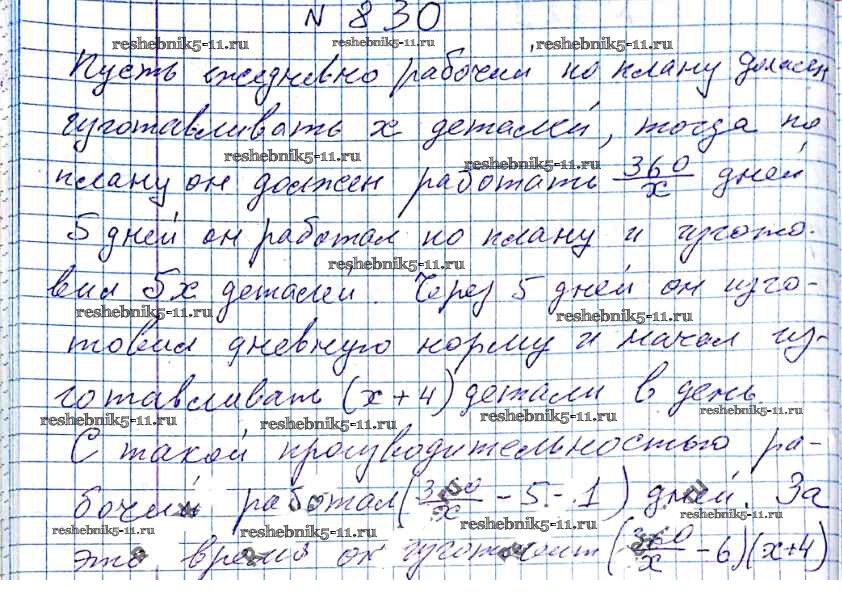 N 830
reshebnik5-11.ru reshebnik5-11.ru reshebnik5-11.ru
Пусть ежедневно рабочий по плану должен
изготавливать x деталей, тогда по
reshebnik5-11.ru reshebnik5-11.ru
плану он должен работать 360/x дней
5 дней он работал по плану и изгото-
reshebnik5-11.ru
вил 5x деталей. Через 5 дней он изго-
reshebnik5-11.ru reshebnik5-11.ru
товил дневную норму и начал из-
готавливать (x+4) детали в день.
reshebnik5-11.ru reshebnik5-11.ru reshebnik5-11.ru reshebnik5-11.ru
С такой производительностью ра-
бочий работал (360/x - 5 - 1) дней. За
reshebnik5-11.ru reshebnik5-11.ru reshebnik5-11.ru reshebnik5-11.ru
это время он изготовит (360/x - 6)(x+4)